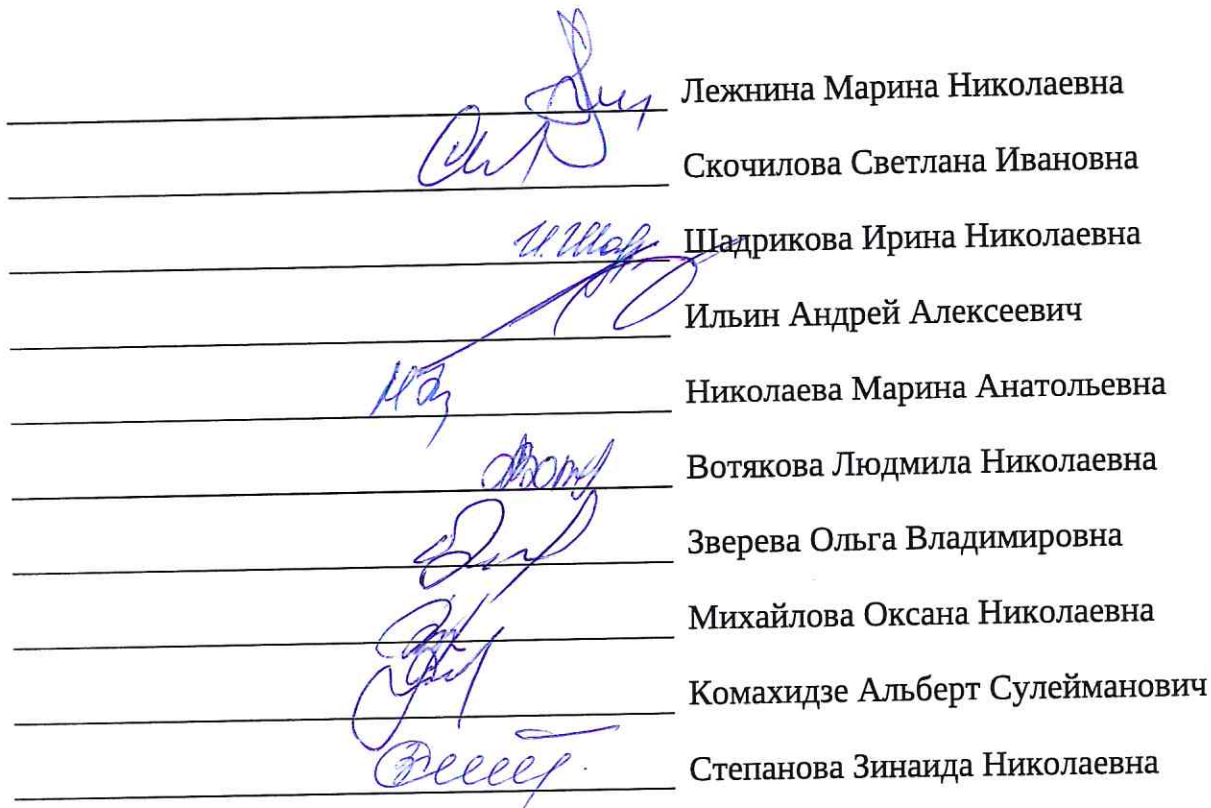 Лежнина Марина Николаевна
Скочилова Светлана Ивановна
Шадрикова Ирина Николаевна
Ильин Андрей Алексеевич
Николаева Марина Анатольевна
Вотякова Людмила Николаевна
Зверева Ольга Владимировна
Михайлова Оксана Николаевна
Комахидзе Альберт Сулейманович
Степанова Зинаида Николаевна